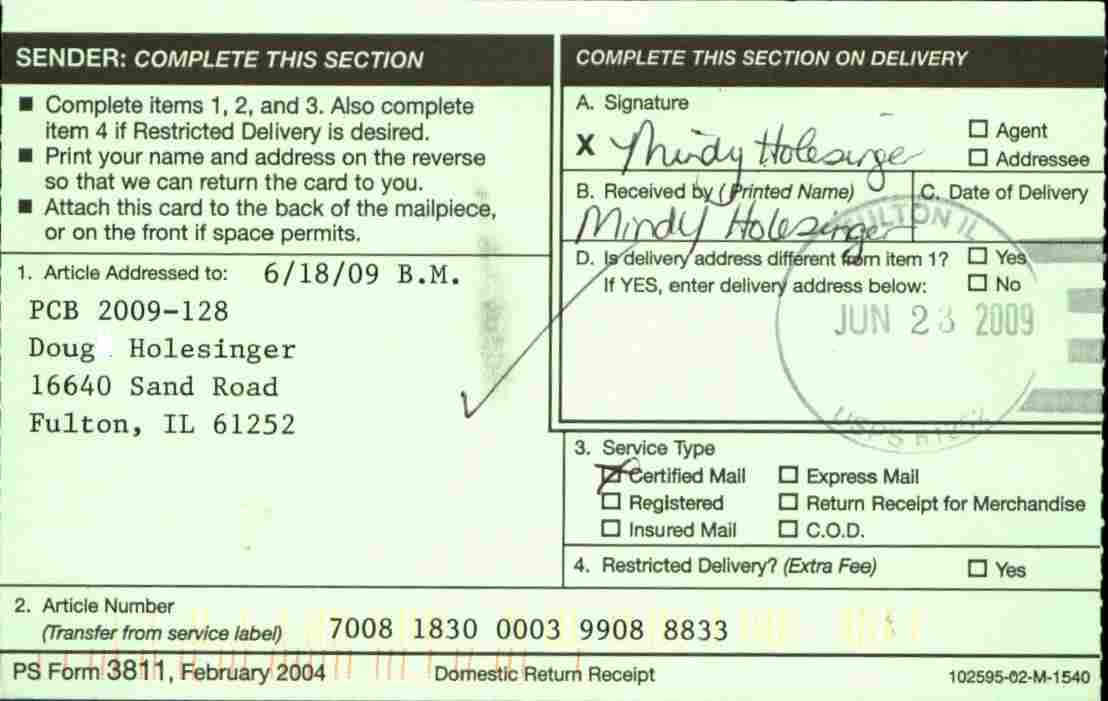 SENDER: COMPLETE THIS SECTION
■ Complete items 1, 2, and 3. Also complete
item 4 if Restricted Delivery is desired.
■ Print your name and address on the reverse
so that we can return the card to you.
■ Attach this card to the back of the mailpiece,
or on the front if space permits.
1. Article Addressed to: 6/18/09 B.M.
PCB 2009-128
Doug Holesinger
16640 Sand Road
Fulton, IL 61252
COMPLETE THIS SECTION ON DELIVERY
A. Signature
X Mindy Holesinger
☐ Agent
☐ Addressee
B. Received by (Printed Name)
Mindy Holesinger
C. Date of Delivery
D. Is delivery address different from item 1? ☐ Yes
If YES, enter delivery address below: ☐ No
FULTON IL
JUN 23 2009
USPS 61252
3. Service Type
☒ Certified Mail ☐ Express Mail
☐ Registered ☐ Return Receipt for Merchandise
☐ Insured Mail ☐ C.O.D.
4. Restricted Delivery? (Extra Fee) ☐ Yes
2. Article Number
(Transfer from service label) 7008 1830 0003 9908 8833
PS Form 3811, February 2004 Domestic Return Receipt 102595-02-M-1540